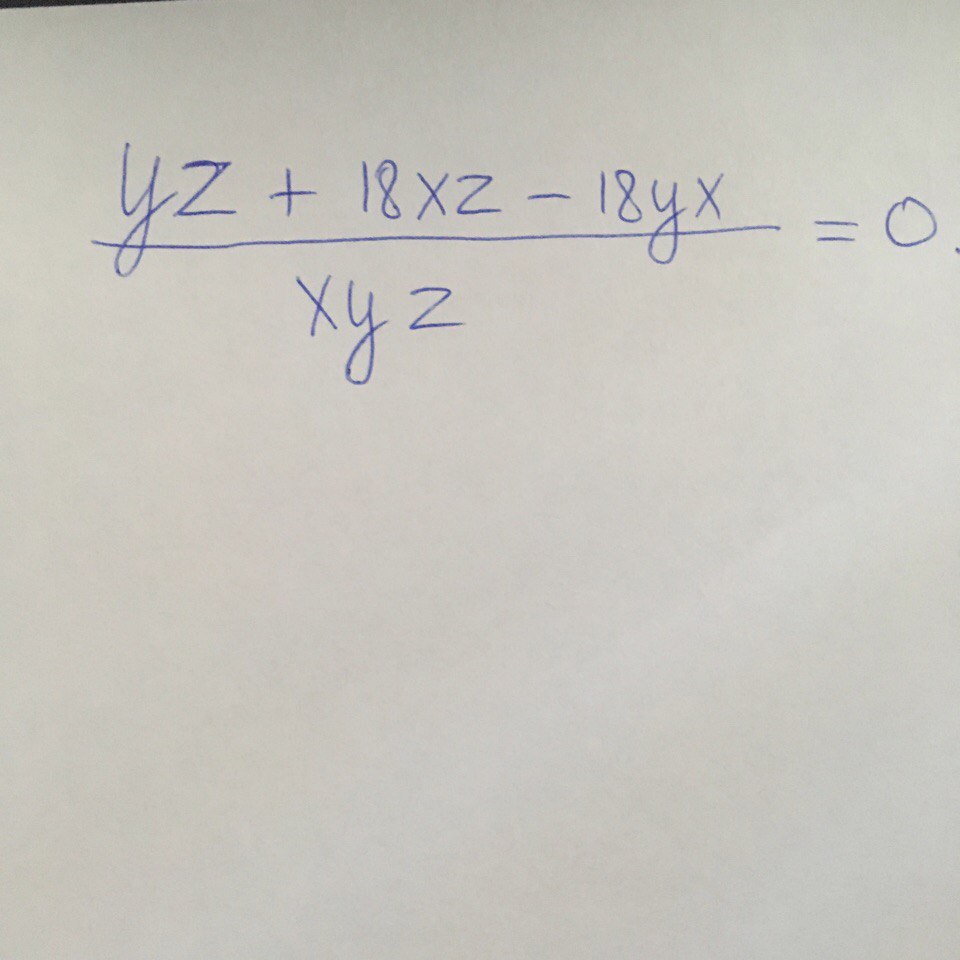 yz + 18xz - 18yx
――――――――― = 0.
xyz